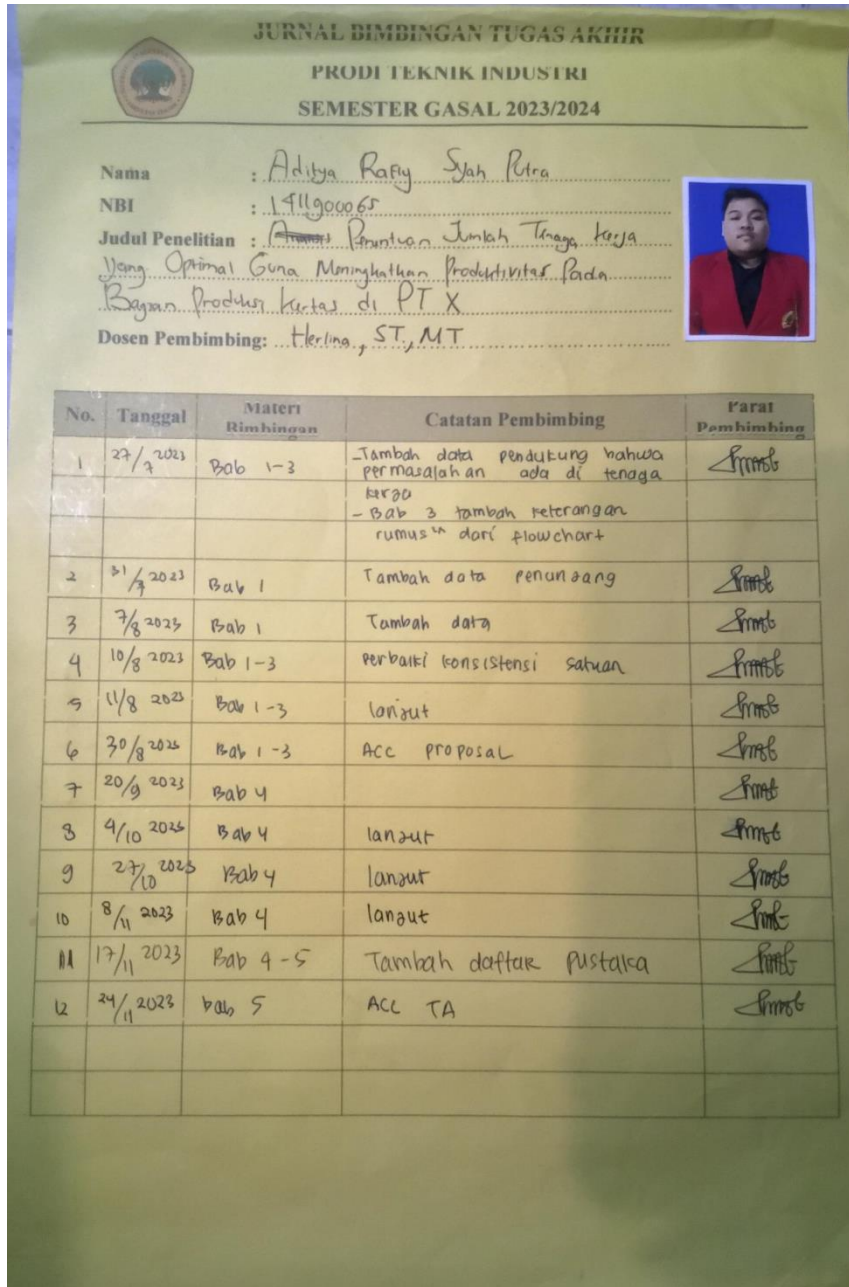 JURNAL BIMBINGAN TUGAS AKHIR
PRODI TEKNIK INDUSTRI
SEMESTER GASAL 2023/2024
Nama : Aditya Rafly Syah Putra
NBI : 1411900065
Judul Penelitian : Penentuan Jumlah Tenaga Kerja
Yang Optimal Guna Meningkatkan Produktivitas Pada
Bagian Produksi Kertas di PT X
Dosen Pembimbing: Herlina, ST., MT
No. Tanggal Materi Bimbingan Catatan Pembimbing Paraf Pembimbing
1 27/7 2023 Bab 1-3 -Tambah data pendukung bahwa
permasalahan ada di tenaga
kerja
- Bab 3 tambah keterangan
rumus" dari flowchart
2 31/7 2023 Bab 1 Tambah data penunjang
3 7/8 2023 Bab 1 Tambah data
4 10/8 2023 Bab 1-3 perbaiki konsistensi satuan
5 11/8 2023 Bab 1-3 lanjut
6 30/8 2023 Bab 1-3 ACC proposal
7 20/9 2023 Bab 4
8 4/10 2023 Bab 4 lanjut
9 27/10 2023 Bab 4 lanjut
10 8/11 2023 Bab 4 lanjut
11 17/11 2023 Bab 4-5 Tambah daftar pustaka
12 24/11 2023 bab 5 ACC TA